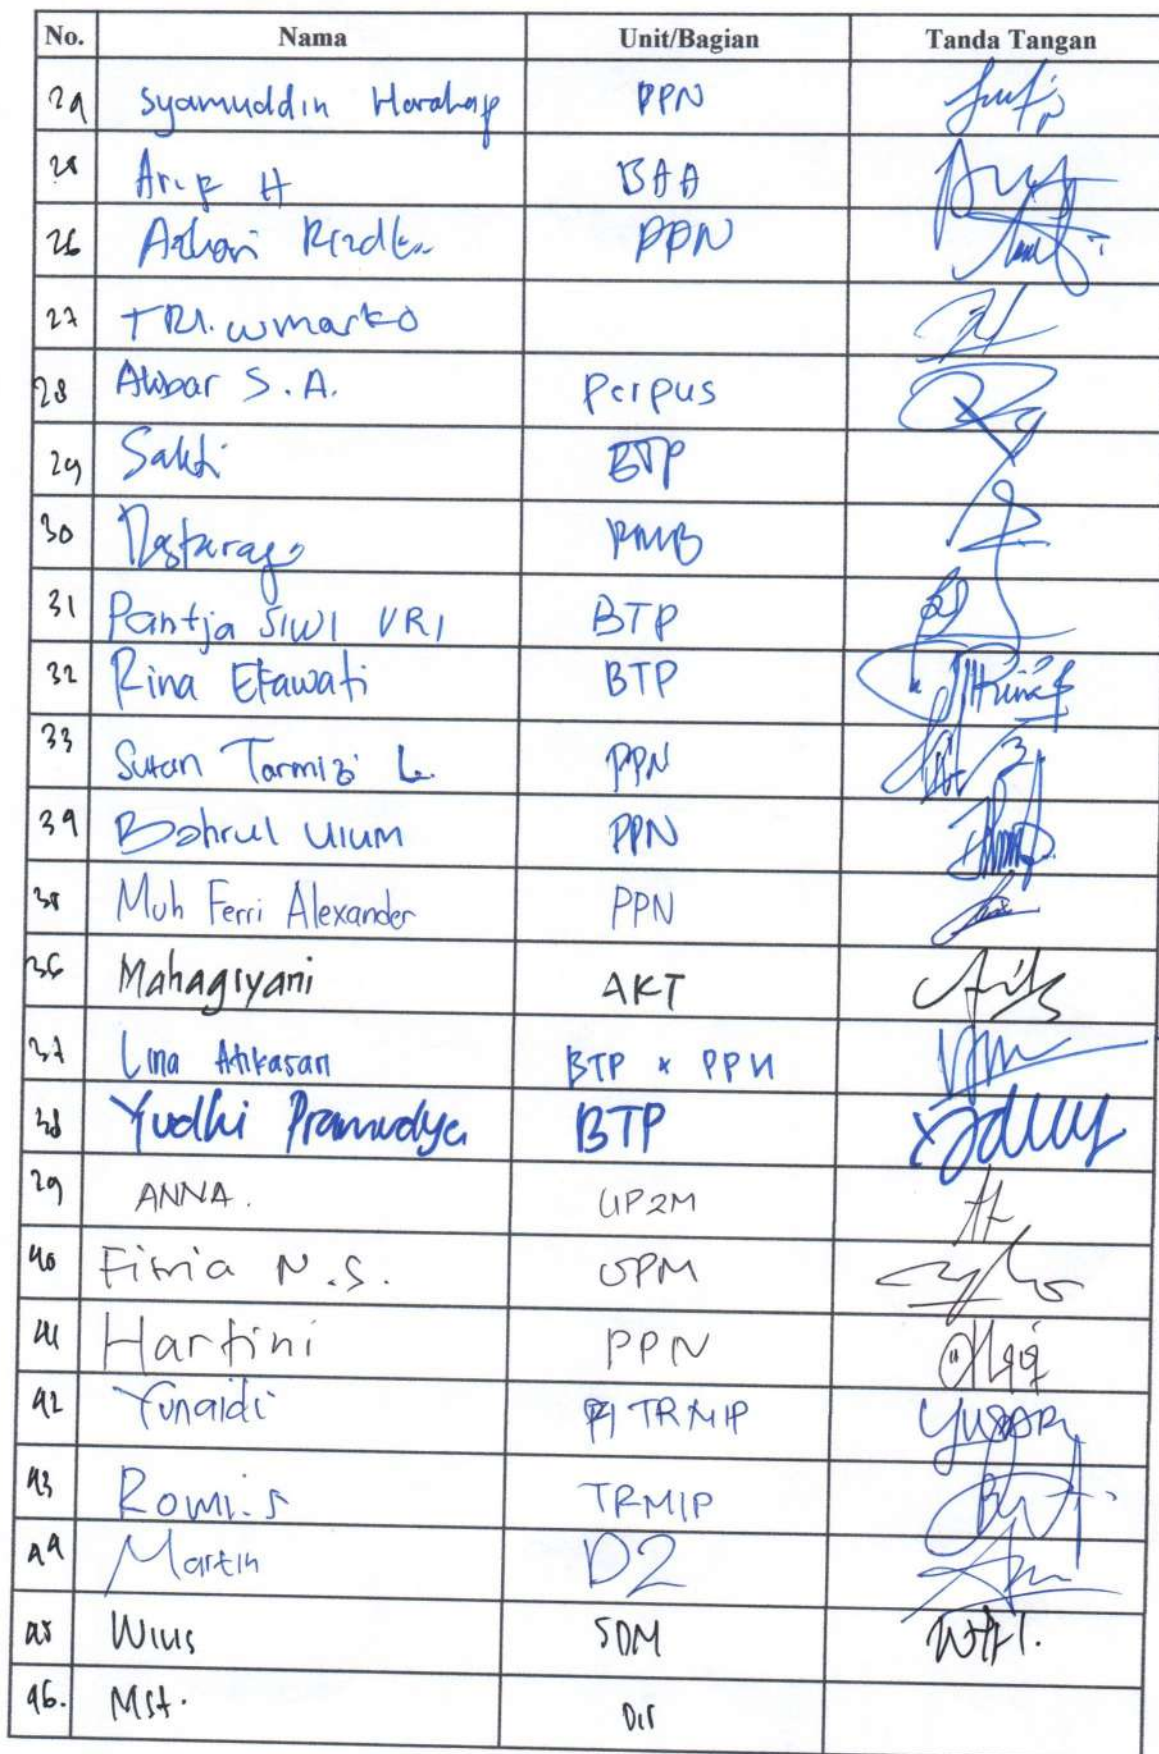 No. Nama Unit/Bagian Tanda Tangan
24 Syamuddin Harahap PPN
25 Arif H BAA
26 Azhari PPN
27 TRI. wmarko
28 Akbar S.A. Perpus
29 Sakti BTP
30 PMB
31 Pantja SIWI VRI BTP
32 Rina Ekawati BTP
33 Sutan Tarmizi L. PPN
34 Bahrul Ulum PPN
35 Muh Ferri Alexander PPN
36 Mahagiyani AKT
37 Lina Atikasari BTP PPN
38 Yudhi Pramudya BTP
39 ANNA. UP2M
40 Fitria N.S. UPM
41 Hartini PPN
42 Yunaidi TRMIP
43 Romi.S TRMIP
44 Martin D2
45 Wius SDM
46. Mst. Dir